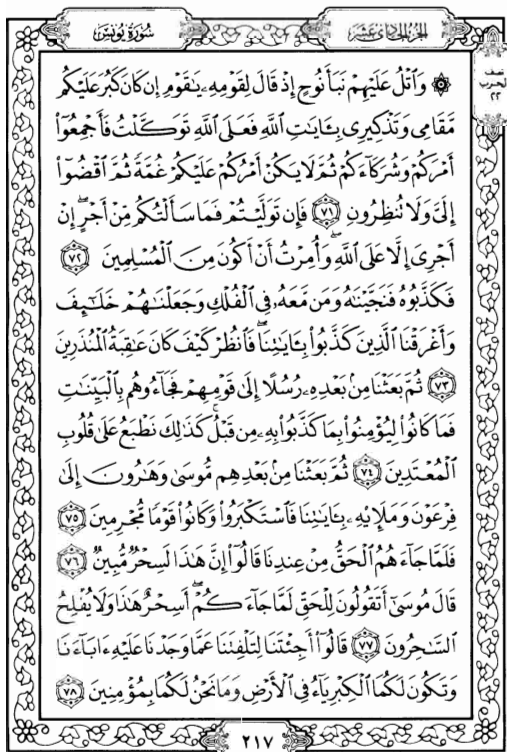 سُورَةُ يُونُسَ الجُزْءُ الحَادِي عَشَرَ
نصف
الحزب
٢٢
۞ وَٱتۡلُ عَلَيۡهِمۡ نَبَأَ نُوحٍ إِذۡ قَالَ لِقَوۡمِهِۦ يَٰقَوۡمِ إِن كَانَ كَبُرَ عَلَيۡكُم
مَّقَامِي وَتَذۡكِيرِي بِـَٔايَٰتِ ٱللَّهِ فَعَلَى ٱللَّهِ تَوَكَّلۡتُ فَأَجۡمِعُوٓاْ
أَمۡرَكُمۡ وَشُرَكَآءَكُمۡ ثُمَّ لَا يَكُنۡ أَمۡرُكُمۡ عَلَيۡكُمۡ غُمَّةٗ ثُمَّ ٱقۡضُوٓاْ
إِلَيَّ وَلَا تُنظِرُونِ ٧١ فَإِن تَوَلَّيۡتُمۡ فَمَا سَأَلۡتُكُم مِّنۡ أَجۡرٍۖ إِنۡ
أَجۡرِيَ إِلَّا عَلَى ٱللَّهِۖ وَأُمِرۡتُ أَنۡ أَكُونَ مِنَ ٱلۡمُسۡلِمِينَ ٧٢
فَكَذَّبُوهُ فَنَجَّيۡنَٰهُ وَمَن مَّعَهُۥ فِي ٱلۡفُلۡكِ وَجَعَلۡنَٰهُمۡ خَلَٰٓئِفَ
وَأَغۡرَقۡنَا ٱلَّذِينَ كَذَّبُواْ بِـَٔايَٰتِنَاۖ فَٱنظُرۡ كَيۡفَ كَانَ عَٰقِبَةُ ٱلۡمُنذَرِينَ
٧٣ ثُمَّ بَعَثۡنَا مِنۢ بَعۡدِهِۦ رُسُلًا إِلَىٰ قَوۡمِهِمۡ فَجَآءُوهُم بِٱلۡبَيِّنَٰتِ
فَمَا كَانُواْ لِيُؤۡمِنُواْ بِمَا كَذَّبُواْ بِهِۦ مِن قَبۡلُۚ كَذَٰلِكَ نَطۡبَعُ عَلَىٰ قُلُوبِ
ٱلۡمُعۡتَدِينَ ٧٤ ثُمَّ بَعَثۡنَا مِنۢ بَعۡدِهِم مُّوسَىٰ وَهَٰرُونَ إِلَىٰ
فِرۡعَوۡنَ وَمَلَإِيْهِۦ بِـَٔايَٰتِنَا فَٱسۡتَكۡبَرُواْ وَكَانُواْ قَوۡمٗا مُّجۡرِمِينَ ٧٥
فَلَمَّا جَآءَهُمُ ٱلۡحَقُّ مِنۡ عِندِنَا قَالُوٓاْ إِنَّ هَٰذَا لَسِحۡرٞ مُّبِينٞ ٧٦
قَالَ مُوسَىٰٓ أَتَقُولُونَ لِلۡحَقِّ لَمَّا جَآءَكُمۡۖ أَسِحۡرٌ هَٰذَا وَلَا يُفۡلِحُ
ٱلسَّٰحِرُونَ ٧٧ قَالُوٓاْ أَجِئۡتَنَا لِتَلۡفِتَنَا عَمَّا وَجَدۡنَا عَلَيۡهِ ءَابَآءَنَا
وَتَكُونَ لَكُمَا ٱلۡكِبۡرِيَآءُ فِي ٱلۡأَرۡضِ وَمَا نَحۡنُ لَكُمَا بِمُؤۡمِنِينَ ٧٨
٢١٧